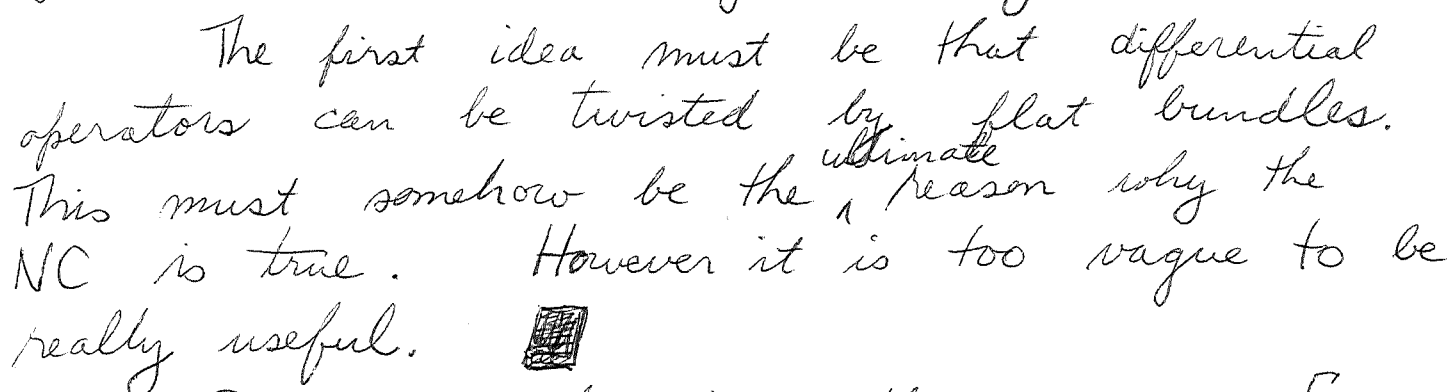 The first idea must be that differential
operators can be twisted by flat bundles.
This must somehow be the ultimate reason why the
NC is true. However it is too vague to be
really useful.